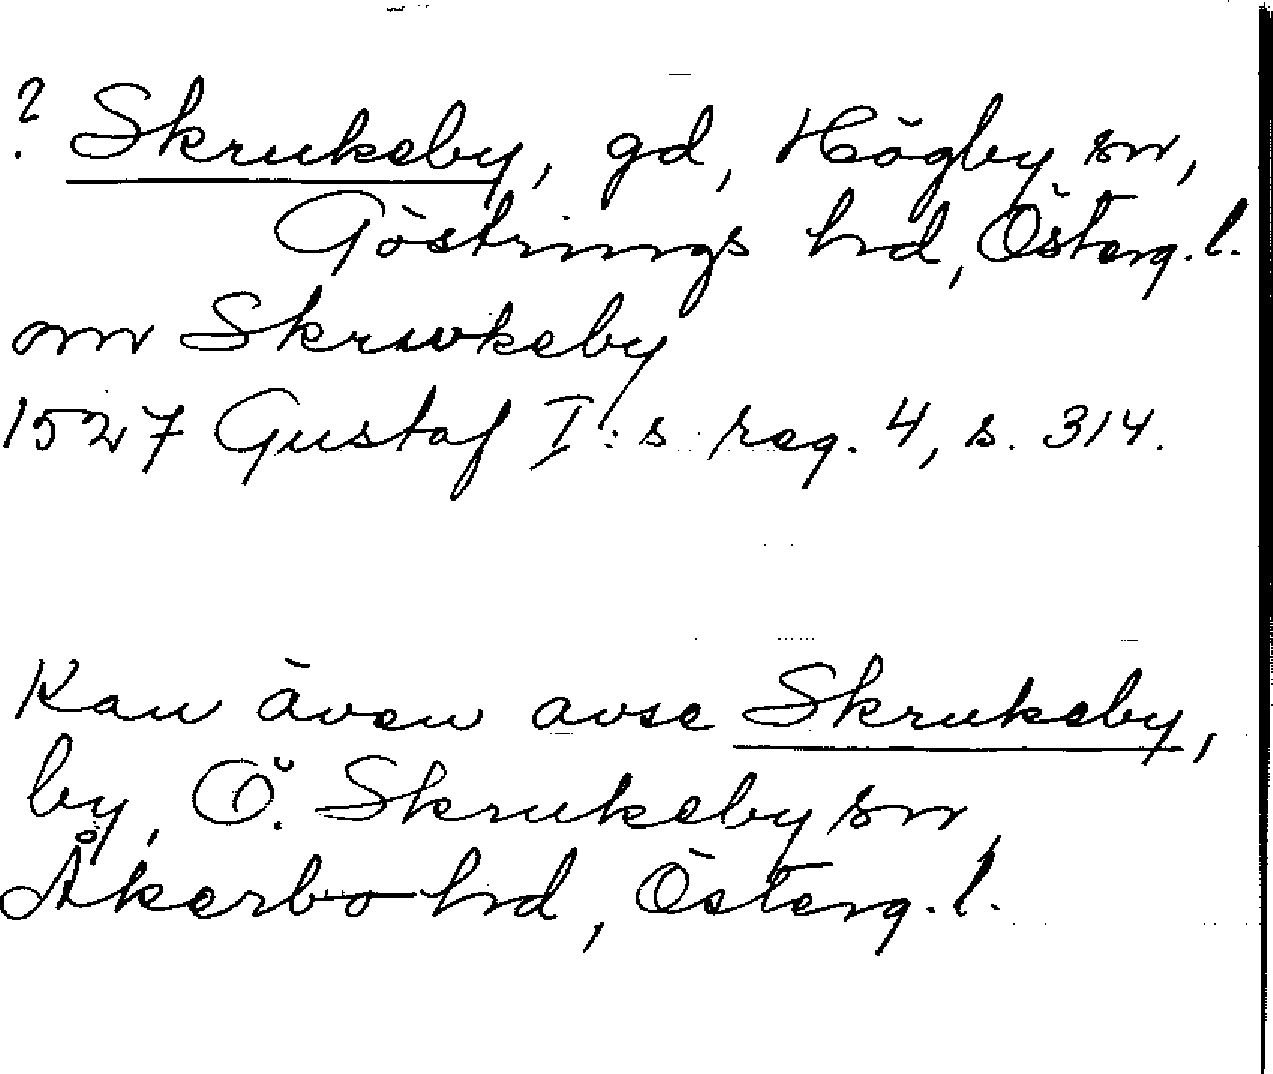 ? Skrukeby, gd, Högby sn,
Göstrings hrd, Österg. l.
Skrwkeby
1527 Gustaf I:s reg. 4, s. 314.
Kan även avse Skrukeby,
by, Ö. Skrukeby sn,
Åkerbo hrd, Österg. l.